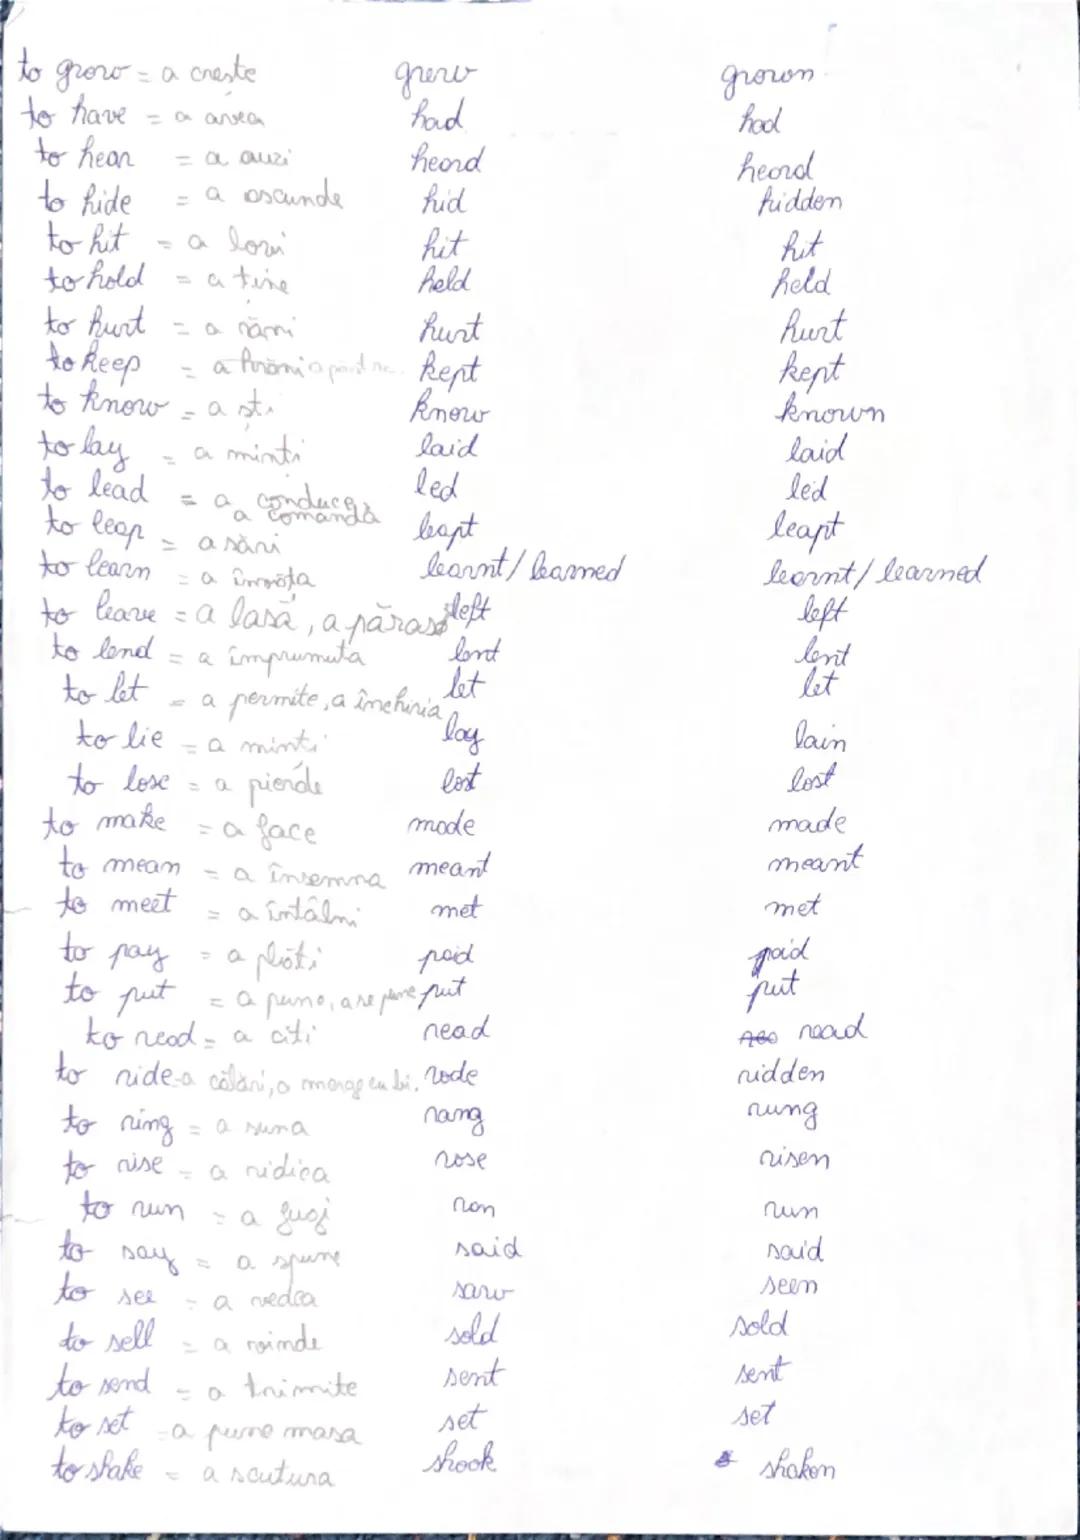 to grow = a crește grew grown
to have = a avea had had
to hear = a auzi heard heard
to hide = a ascunde hid hidden
to hit = a lovi hit hit
to hold = a ține held held
to hurt = a răni hurt hurt
to keep = a hrăni a păstra kept kept
to know = a ști know known
to lay = a minți laid laid
to lead = a conduce, a comanda led led
to leap = a sări leapt leapt
to learn = a învăța learnt/learned learnt/learned
to leave = a lasă, a părăsi left left
to lend = a împrumuta lent lent
to let = a permite, a închiria let let
to lie = a minți lay lain
to lose = a pierde lost lost
to make = a face made made
to mean = a însemna meant meant
to meet = a întâlni met met
to pay = a plăti paid paid
to put = a pune, a se pune put put
to read = a citi read read
to ride = a călări, a merge cu bi. rode ridden
to ring = a suna rang rung
to rise = a ridica rose risen
to run = a fugi ran run
to say = a spune said said
to see = a vedea saw seen
to sell = a vinde sold sold
to send = a trimite sent sent
to set = a pune masa set set
to shake = a scutura shook shaken